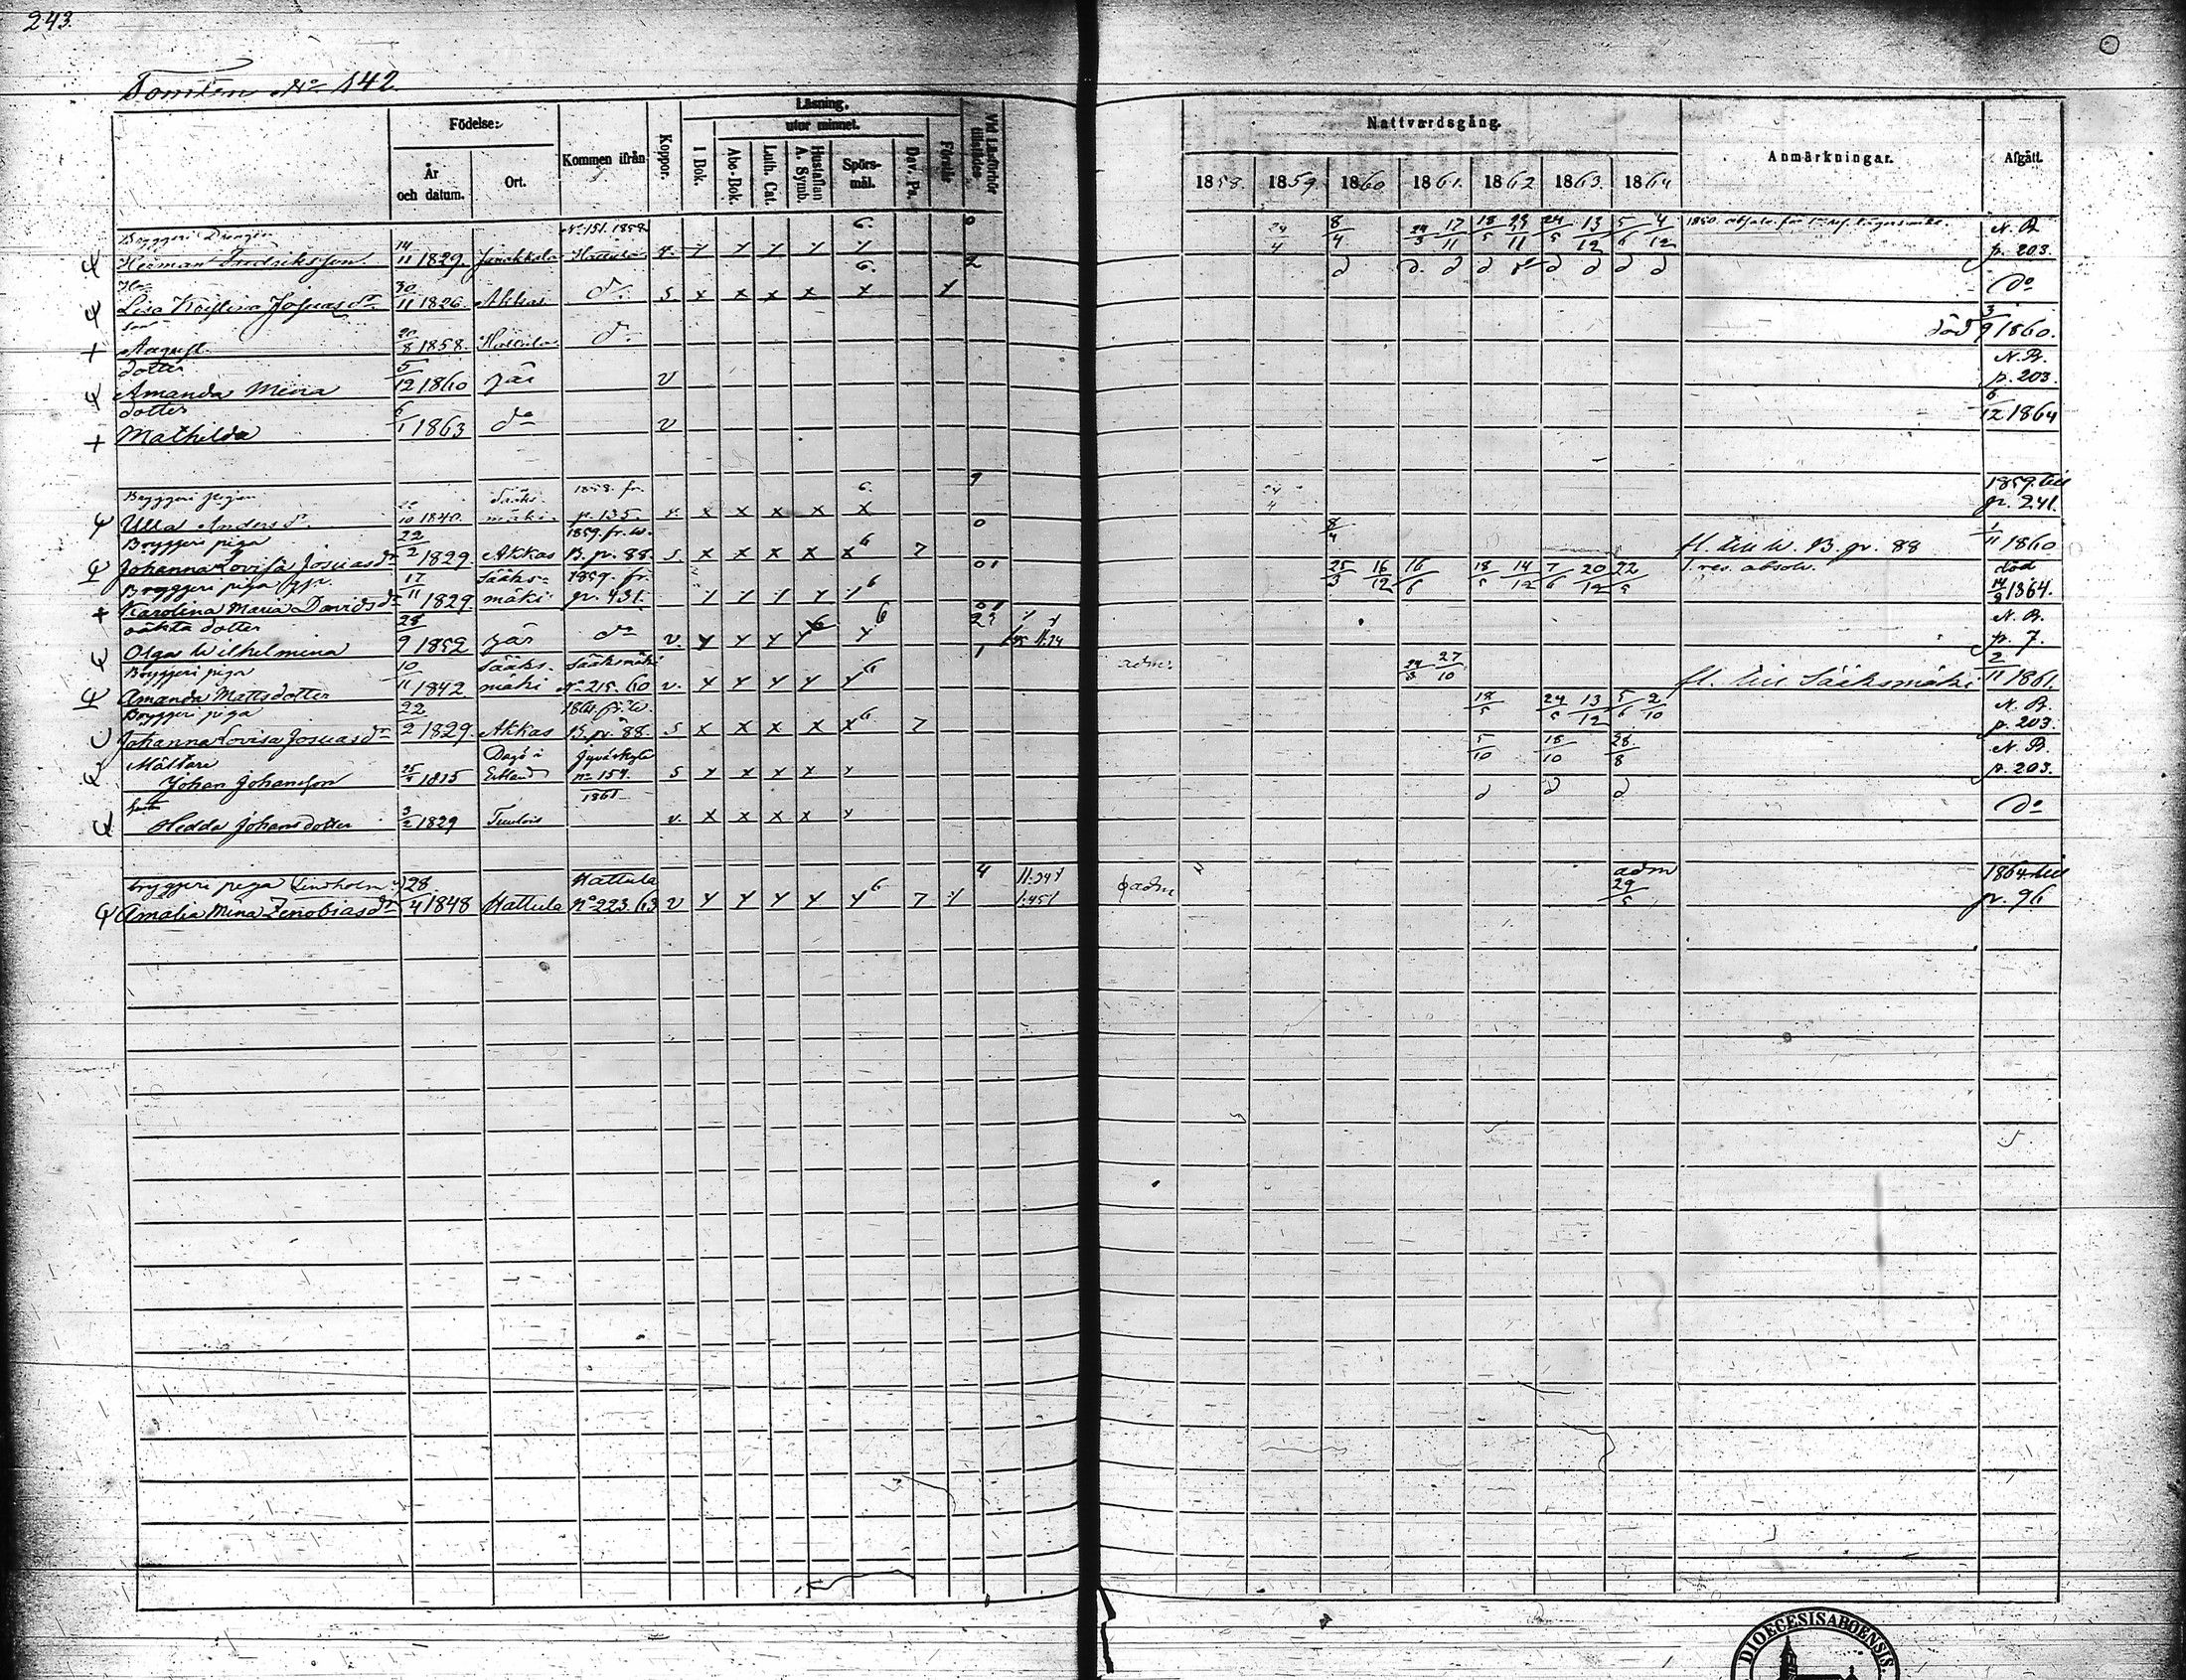 243.
Tomten No 142.
Födelse:
Läsning.
utur minnet.
År och datum.
Ort.
Kommen ifrån
Koppor.
I Bok.
Abc-Bok.
Luth. Cat.
Hustaflan A. Symb.
Spörsmål.
Dav. Ps.
Förstår
Vid Läsförhör tillstädes
Nattvardsgång.
1858. 1859 1860 1861. 1862 1863. 1864
Anmärkningar.
Afgått.
Bryggeri Drängen No 151. 1858. 6. 0
Herman Fredriksson 14/11 1829. Janakkala Hattula 24/4 8/4 24/3 17/11 18/5 23/11 24/5 13/12 5/6 4/12 N. B. p. 203.
Hu 6. 2
Lisa Kristina Josuas dr 30/11 1826 Akkas do s. x x x x x do
son
August 20/8 1858. Hattula do död 3/9 1860.
dotter
Amanda Mina 5/12 1860 här v N. B. p. 203.
dotter
Mathilda 6/1 1863 do v 6/12 1864
Bryggeri pigan Sääksmäki 1858. fr. p. 135 6. 1
Ulla Anders dr 10 1840. x x x x x 24/4 1859. till p. 241.
Bryggeri piga 1859. fr. W. B. p. 88. 0
Johanna Lovisa Josuas dr 22/2 1829. Akkas s. x x x x x 6 7 8/4 fl. till W. B. p. 88 1/11 1860
Bryggeri piga Sääksmäki 1859. fr. p. 431. 01
Karolina Maria Davids dr 17/11 1829. 6 25/3 16/12 16/6 18/5 14/12 7/6 20/12 22/5 1. res. absolv. död 14/9 1864.
oäkta dotter
Olga Wilhelmina 28/9 1852 här do v. y y y y y 6 N. B. p. 7.
Bryggeri piga Sääksmäki Sääksmäki No 215. 60 1
Amanda Mattsdotter 10/11 1842 v. y y y y y 6 adm. 24/3 27/10 fl. till Sääksmäki 2/11 1861.
Bryggeri piga 1861. fr. W. B. p. 88.
Johanna Lovisa Josuas dr 22/2 1829. Akkas s x x x x x 6 7 18/5 24/5 13/12 5/6 2/10 N. B. p. 203.
Mältare Dagö i Estland Jyväskylä no 154. 1861
Johan Johansson 25 1815 s y x x x y 5/10 18/10 28/8 N. B. p. 203.
Hedda Johansdotter 3/2 1829 Tuulois v. x x x x y do
bryggeri piga (Lindholm) Hattula No 223. 63 4
Amalia Mina Zenobias dr 28/4 1848 Hattula v y y y y y 6 7 adm adm 29/5 1864 till p. 96
DIOECESIS ABOENSIS.